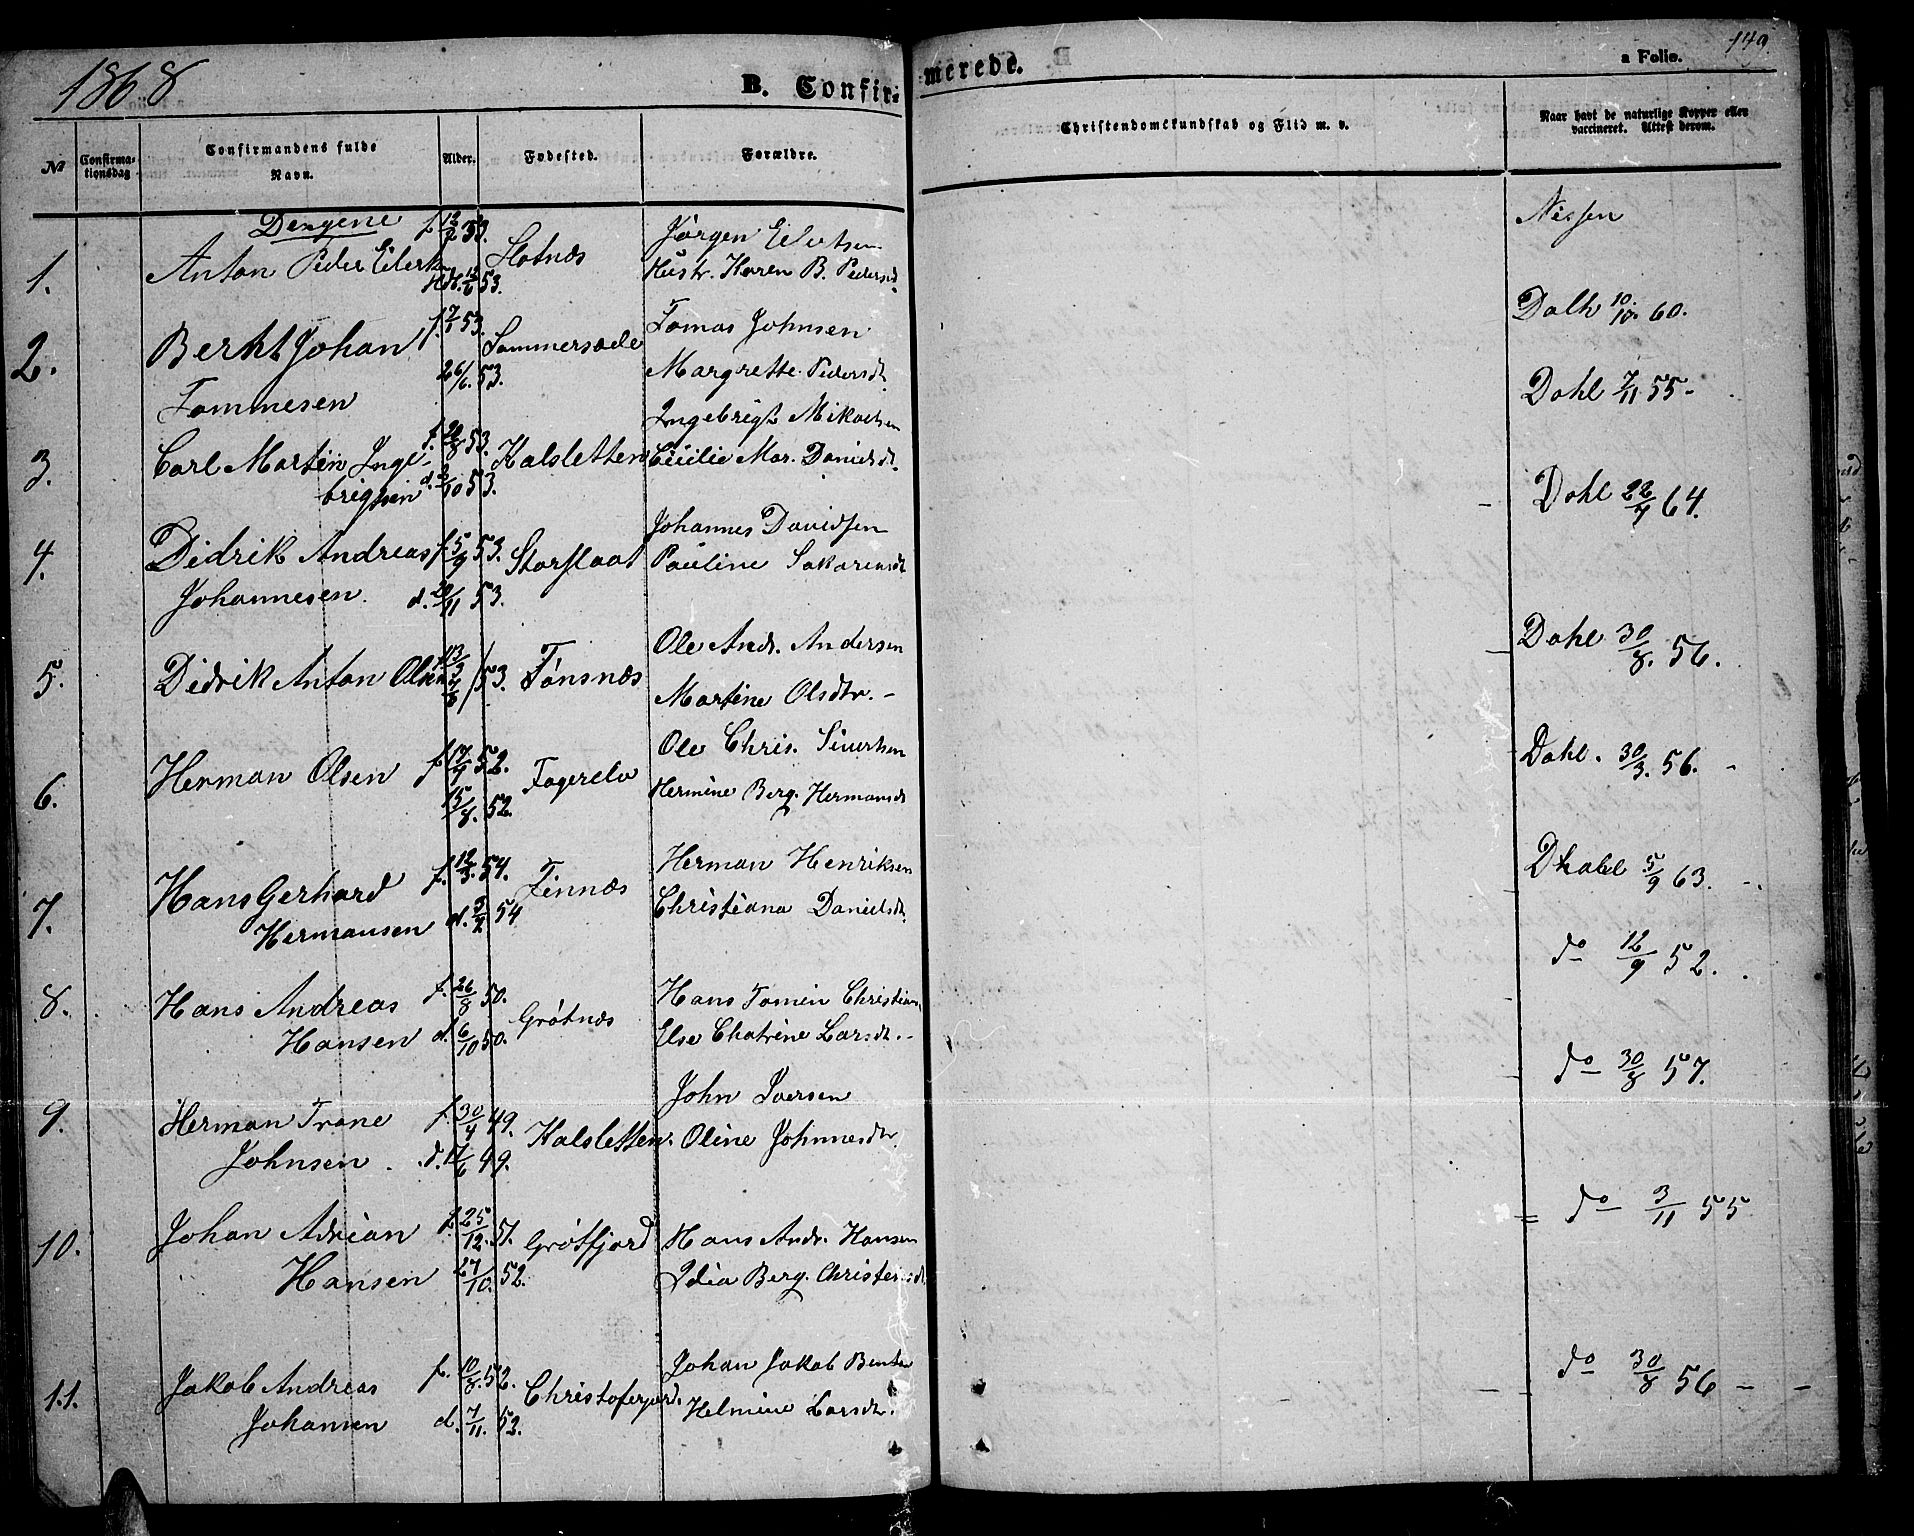 1868
B. Confir-
merede.
a Folio.
149
No
Confirma-
tionsdag
Confirmandens fulde
Navn.
Alder.
Fødested.
Forældre.
Christendomskundskab og Flid m. v.
Naar havt de naturlige Kopper eller
vaccineret. Attest derom.
Drengene
1.
Anton Peder Eilert
f. 12/2 53.
Hd. 12/6 53.
Slotnæs
Jørgen Eilertsen
Hustr. Karen B. Pedersdt.
Nissen
2.
Berht Johan
Tommesen
f. 2/1 53.
26/6. 53.
Sommersæde
Tomas Johnsen
Margrette Pedersdt.
Dalh 10/10. 60.
3.
Carl Martin Inge-
brigtsen
f. 20/8 53.
d. 2/10 53.
Kalsletten
Ingebrigt Mikalsen
Cicilie Mar. Danielsdt.
Dahl 7/11. 55-
4.
Didrik Andreas
Johannesen
f. 5/9 53.
d. 20/11 53.
Storslaat
Johannes Davidsen
Pauline Sakariasdt
Dohl 22/7 64.
5.
Didrik Anton Olsen
53.
Tønsnæs
Ole Andr. Andersen
Martine Olsdtr.-
Dahl 30/8. 56.
6.
Herman Olsen
f. 17/4 52.
15/8. 52.
Fagerelv
Ole Chris. Sivertsen
Hermine Berg. Hermansdt
Dahl. 30/3. 56.-
7.
Hans Gerhard
Hermansen
f. 12/3. 54.
d. 3/2 54
Finnæs
Herman Henriksen
Christiana Danielsdt.
Dhalel 5/9 63.-
8.
Hans Andreas
Hansen
f. 26/8 50.
d. 6/10 50.
Grøtnæs
Hans Tomin Christian
Else Chatrine Larsdt.-
do 12/9 52.
9.
Herman Trane
Johnsen.
f. 30/4 49.
d. 17/6 49.
Kalsletten
John Iversen
Oline Johnnesdtr
do 30/8 57.
10.
Johan Adrian
Hansen
f. 25/12. 51.
27/10. 52.
Grøtfjord
Hans Andr. Hansen
Idia Berg. Christensdt
do 3/11 55
11.
Jakob Andreas
Johansen
f. 10/8. 52.
d. 7/11. 52.
Christoferjord.
Johan Jakob Bentsen
Helmine Larsdtr.
do 30/8 56 - -